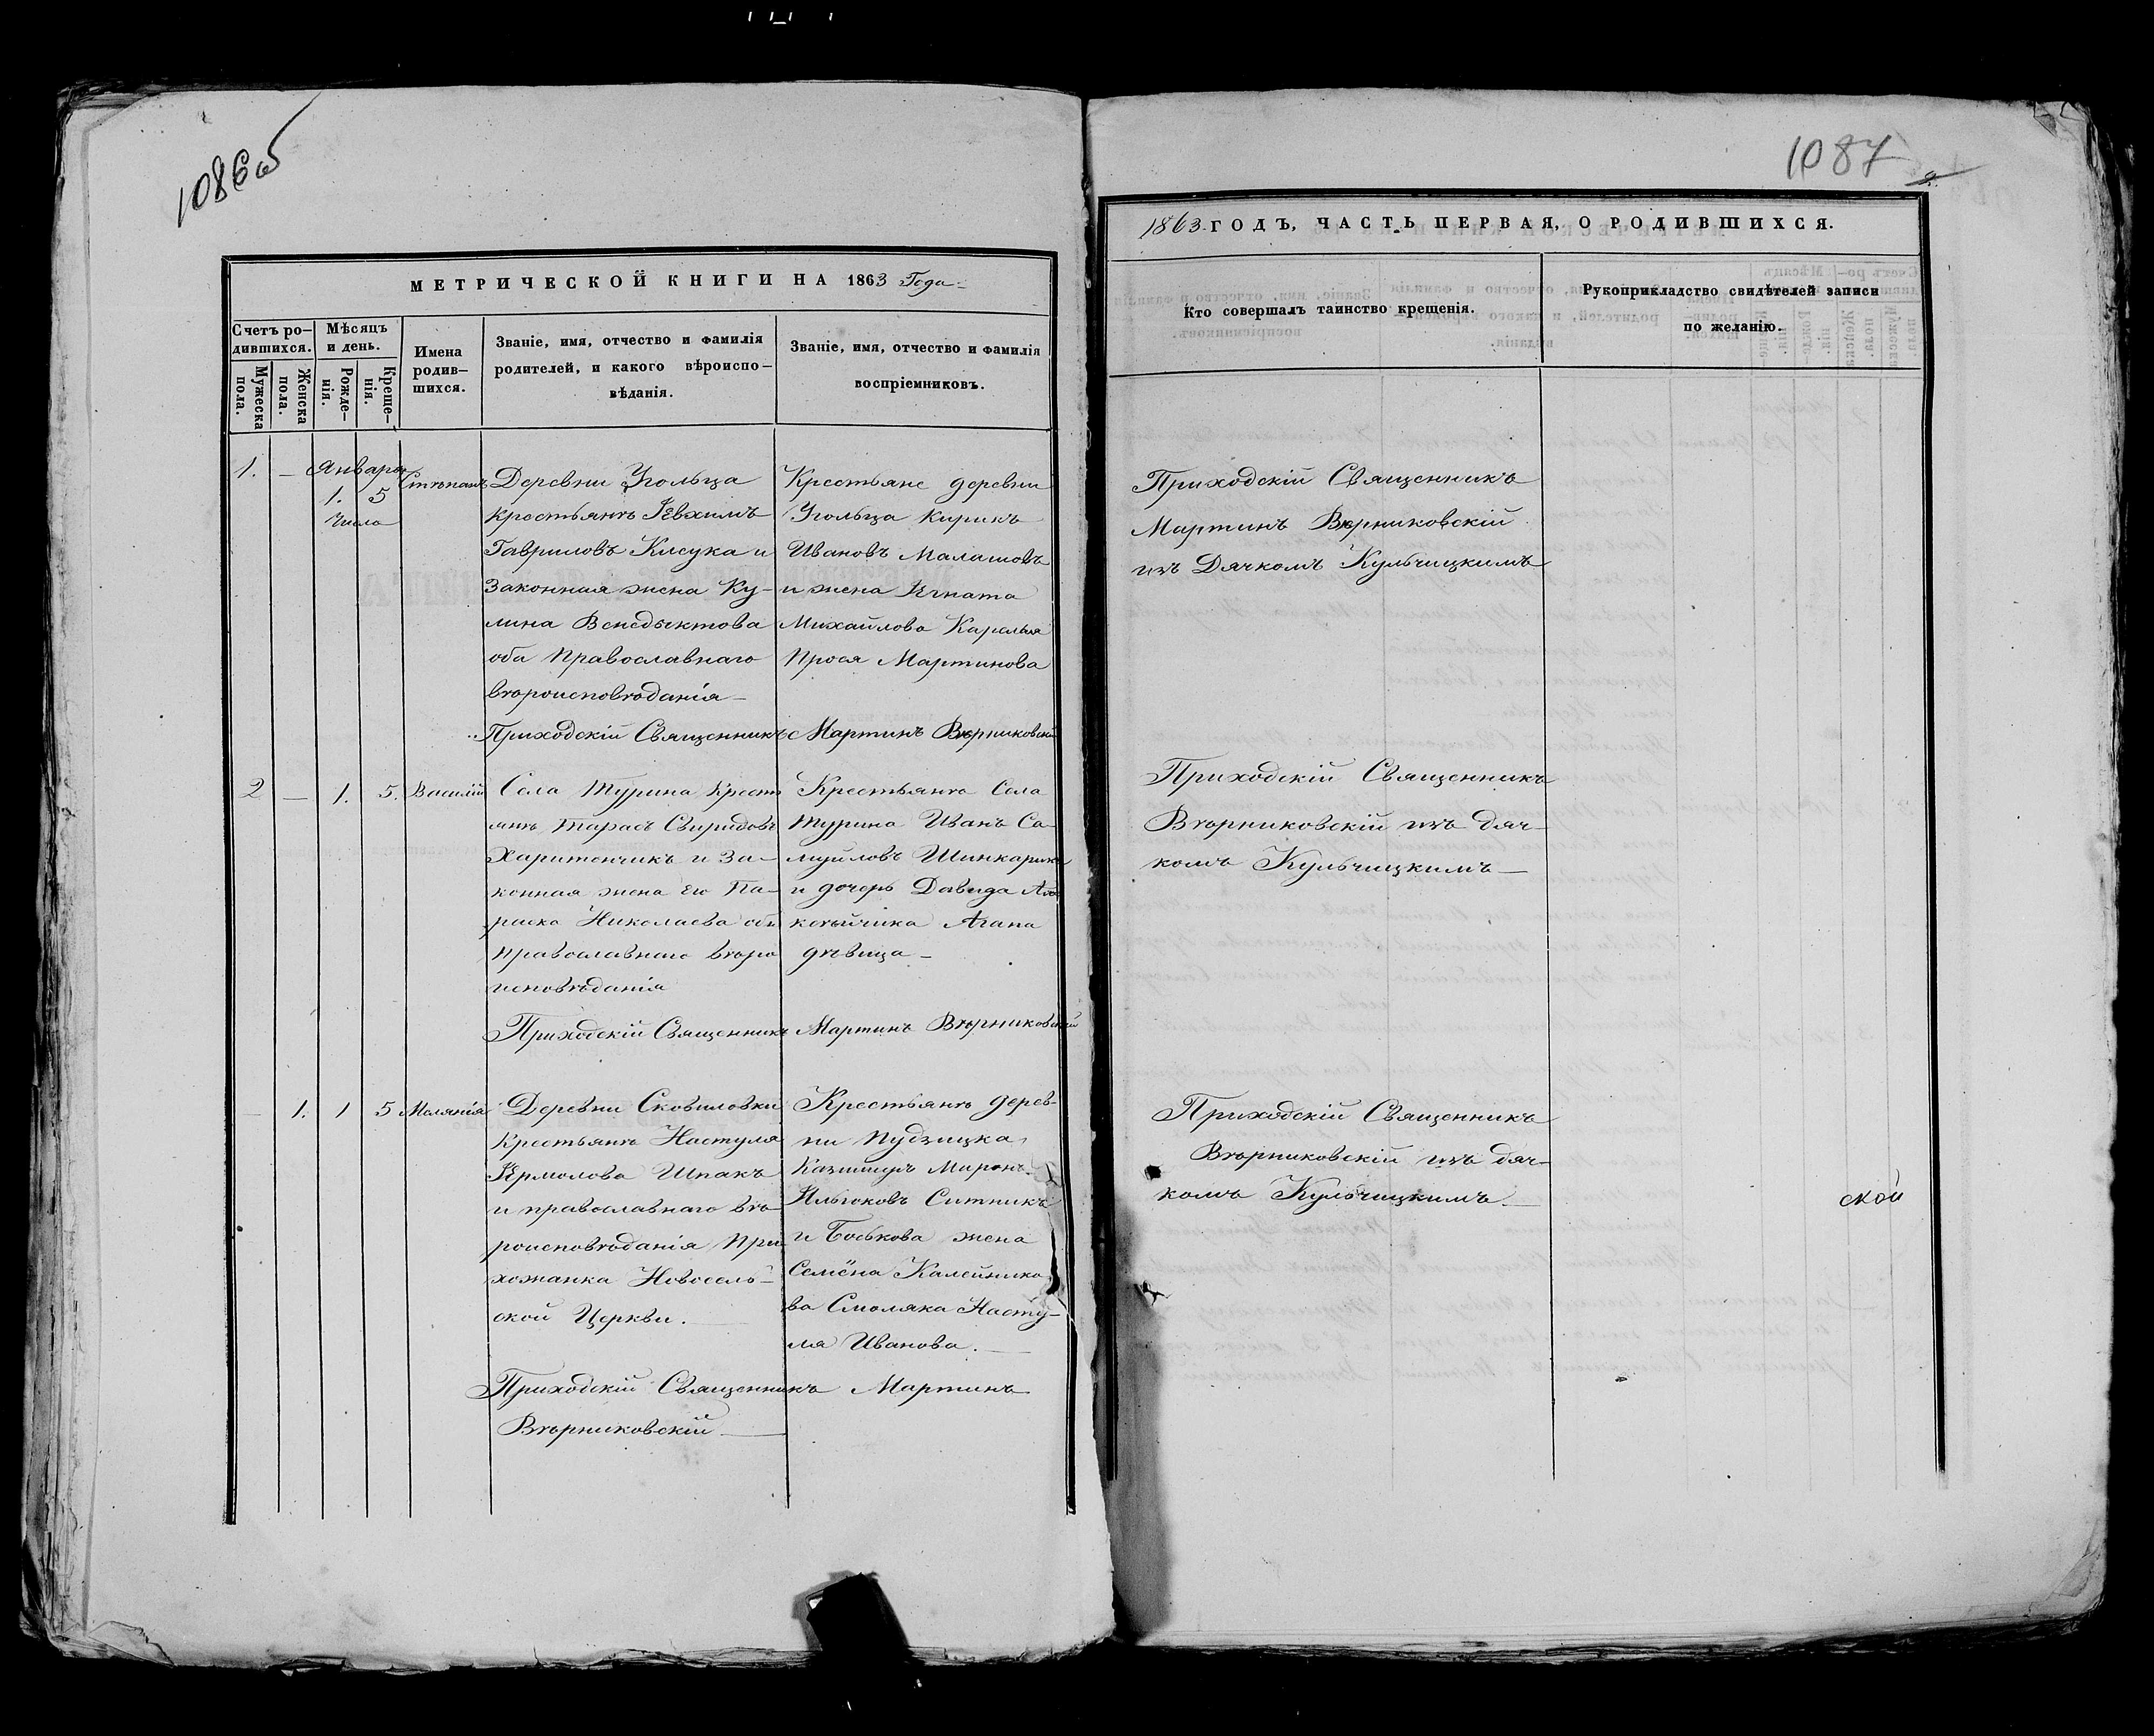 1086 об
МЕТРИЧЕСКОЙ КНИГИ НА 1863 Года
Счетъ ро-
дившихся.
Мѣсяцъ
и день.
Имена
родив-
шихся.
Званіе, имя, отчество и фамилія
родителей, и какого вѣроиспо-
вѣданія.
Званіе, имя, отчество и фамилія
воспріемниковъ.
Мужеска
пола.
Женска
пола.
Рожде-
нія.
Креще-
нія.
1. — Января
1. 5
Числа
Стѣпанъ
Деревни Угольца
крестьянѣ Іевхимъ
Гавриловъ Клсука и
Законная жена Ку-
лина Венедыктова
оба Православнаго
вѣроисповѣданія —
Крестьяне деревни
Угольца Кирикъ
Ивановъ Малашовъ
и жена Игната
Михайлова
Прося Мартинова
Приходскій Священникъ Мартинъ Вѣрниковскій
2 — 1. 5. Василій
Села Турина Крест
янѣ Тарасъ Свиридовъ
Харитончикъ и За-
конная жена его Па-
раска Николаева оба
православнаго вѣро
исповѣданія
Крестьянѣ Села
Турина Иванъ Са-
муйловъ Шинкарикъ
и дочерь Давида
Агапа
дѣвица —
Приходскій Священникъ Мартинъ Вѣрниковскій
— 1. 1 5 Меланія
Деревни Сковиловки
Крестьянѣ Настуля
Ярмолова Шпакъ
и православнаго вѣ-
роисповѣданія При
хожанка Новосель-
ской Церкви. —
Крестьянѣ дерев-
ни Пудзицка
Миронъ
Ситникъ
и Боськова жена
Семёна Калейнико
ва Смоляка Насту-
ля Иванова. —
Приходскій Священникъ Мартинъ
Вѣрниковскій —
1087
1863. ГОДЪ, ЧАСТЬ ПЕРВАЯ, О РОДИВШИХСЯ.
Кто совершалъ таинство крещенія.
Рукоприкладство свидѣтелей записи
по желанію.
Приходскій Священникъ
Мартинъ Вѣрниковскій
изъ Дячкомъ Кульчицкимъ
Приходскій Священникъ
Вѣрниковскій изъ дяч-
комъ Кульчицкимъ —
Приходскій Священникъ
Вѣрниковскій изъ дяч-
комъ Кульчицкимъ. —
ской